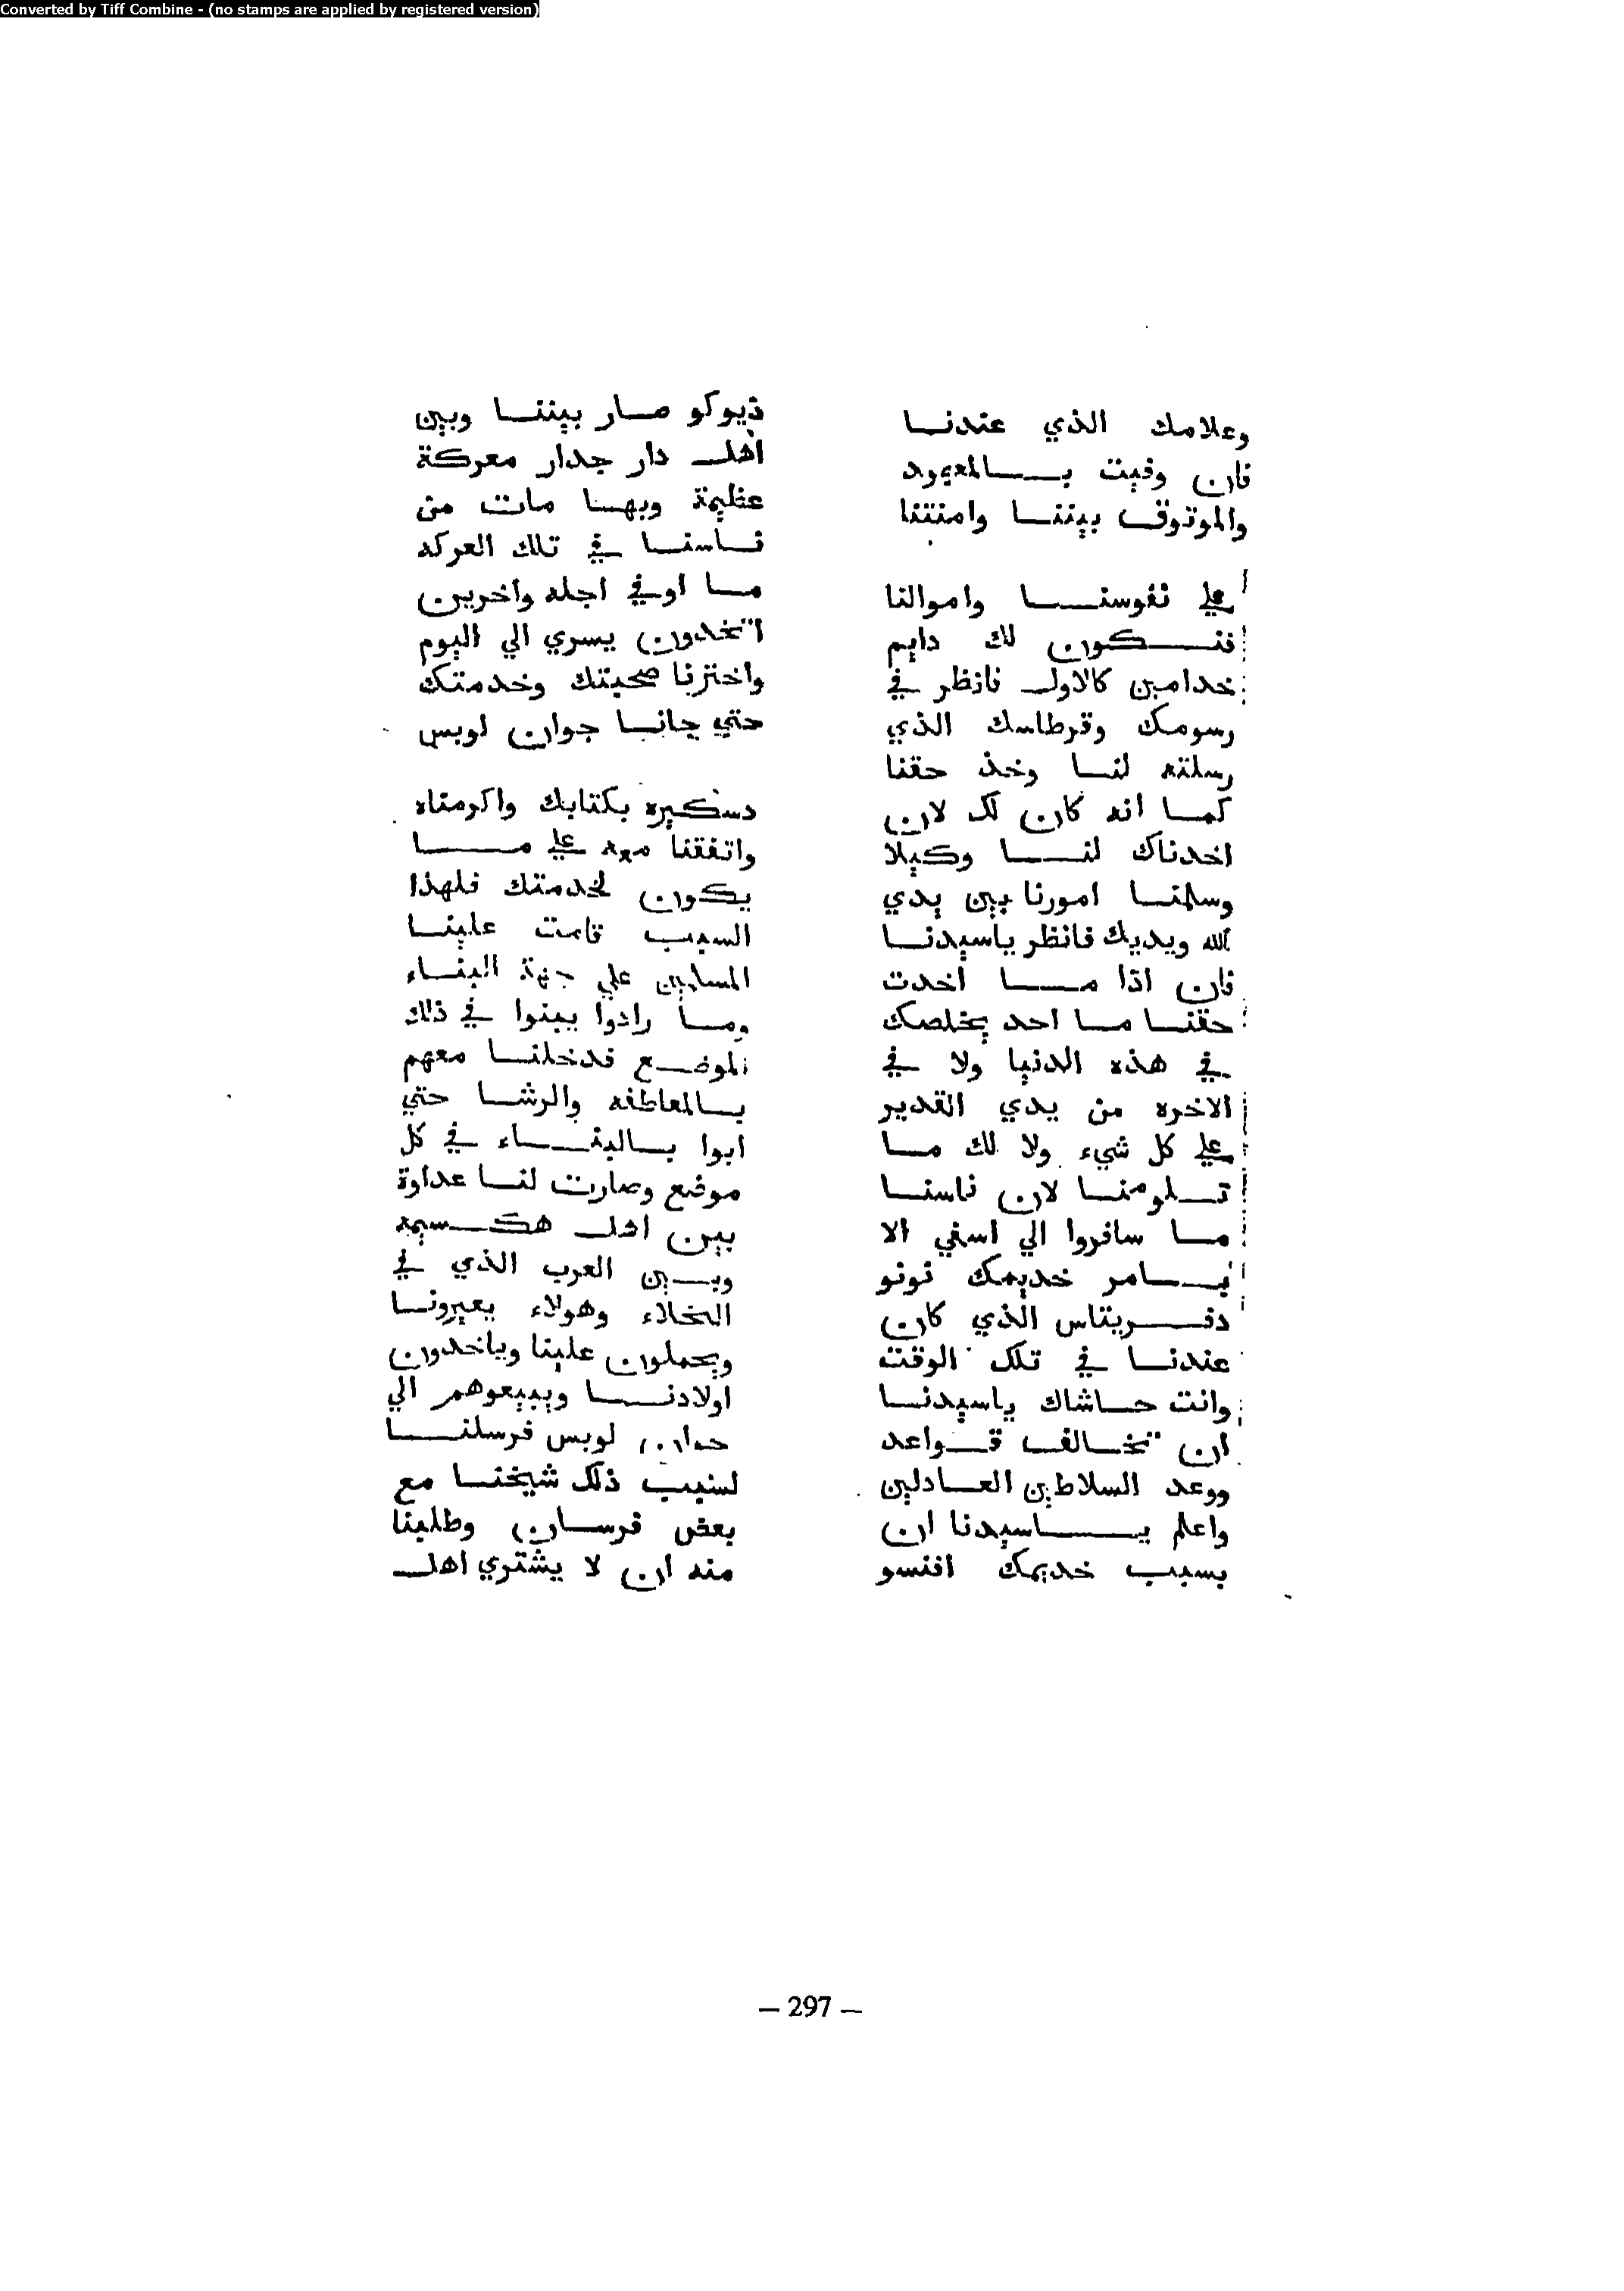 Converted by Tiff Combine - (no stamps are applied by registered version)
وعلامك الذي عندنا
فان وفيت بالمعهود
والموثوق بيننا وامنتنا
على نفوسنا واموالنا
فنكون لك دايم
خدامين كالاول فانظر في
رسومك وقرطاسك الذي
رسلته لنا وخذ حقنا
كما انه كان لك لان
اخدناك لنا وكيلا
وسلمنا امورنا بين يدي
الله ويديك فانظر ياسيدنا
فان اذا ما اخدت
حقنا ما احد يخلصك
في هذه الدنيا ولا في
الاخره من يدي القدير
على كل شيء ولا لك ما
تلومنا لان ناسنا
ما سافروا الي اسفي الا
بامر خديمك نونو
دفريتاس الذي كان
عندنا في تلك الوقت
وانت حاشاك ياسيدنا
ان تخالف قواعد
ووعد السلاطين العادلين
واعلم ياسيدنا ان
بسبب خديمك افنسو
ذيوكو صار بيننا وبين
اهل دار جدار معركة
عظيمة وبها مات من
ناسنا في تلك العركه
ما اوفي اجله واخرين
اتخدون يسري الي اليوم
واخترنا صحبتك وخدمتك
حتي جانا جوان لوبس
دسكيره بكتابك واكرمناه
واتفقنا معه على ما
يكون لخدمتك فلهذا
السبب قامت علينا
المسلمين علي جهة البناء
وما رادوا يبنوا في ذلك
الموضع فدخلنا معهم
بالمعاطفه والرشا حتي
ابوا بالبناء في كل
موضع وصارت لنا عداوة
بين اهل هكسيمه
وبين العرب الذي في
الخلاء وهولاء يعيرونا
ويحملون علينا وياخدون
اولادنا ويبيعوهم الي
جوان لوبس فرسلنا
لسبب ذلك شيخنا مع
بعض فرسان وطلبنا
منه ان لا يشتري اهل
— 297 —